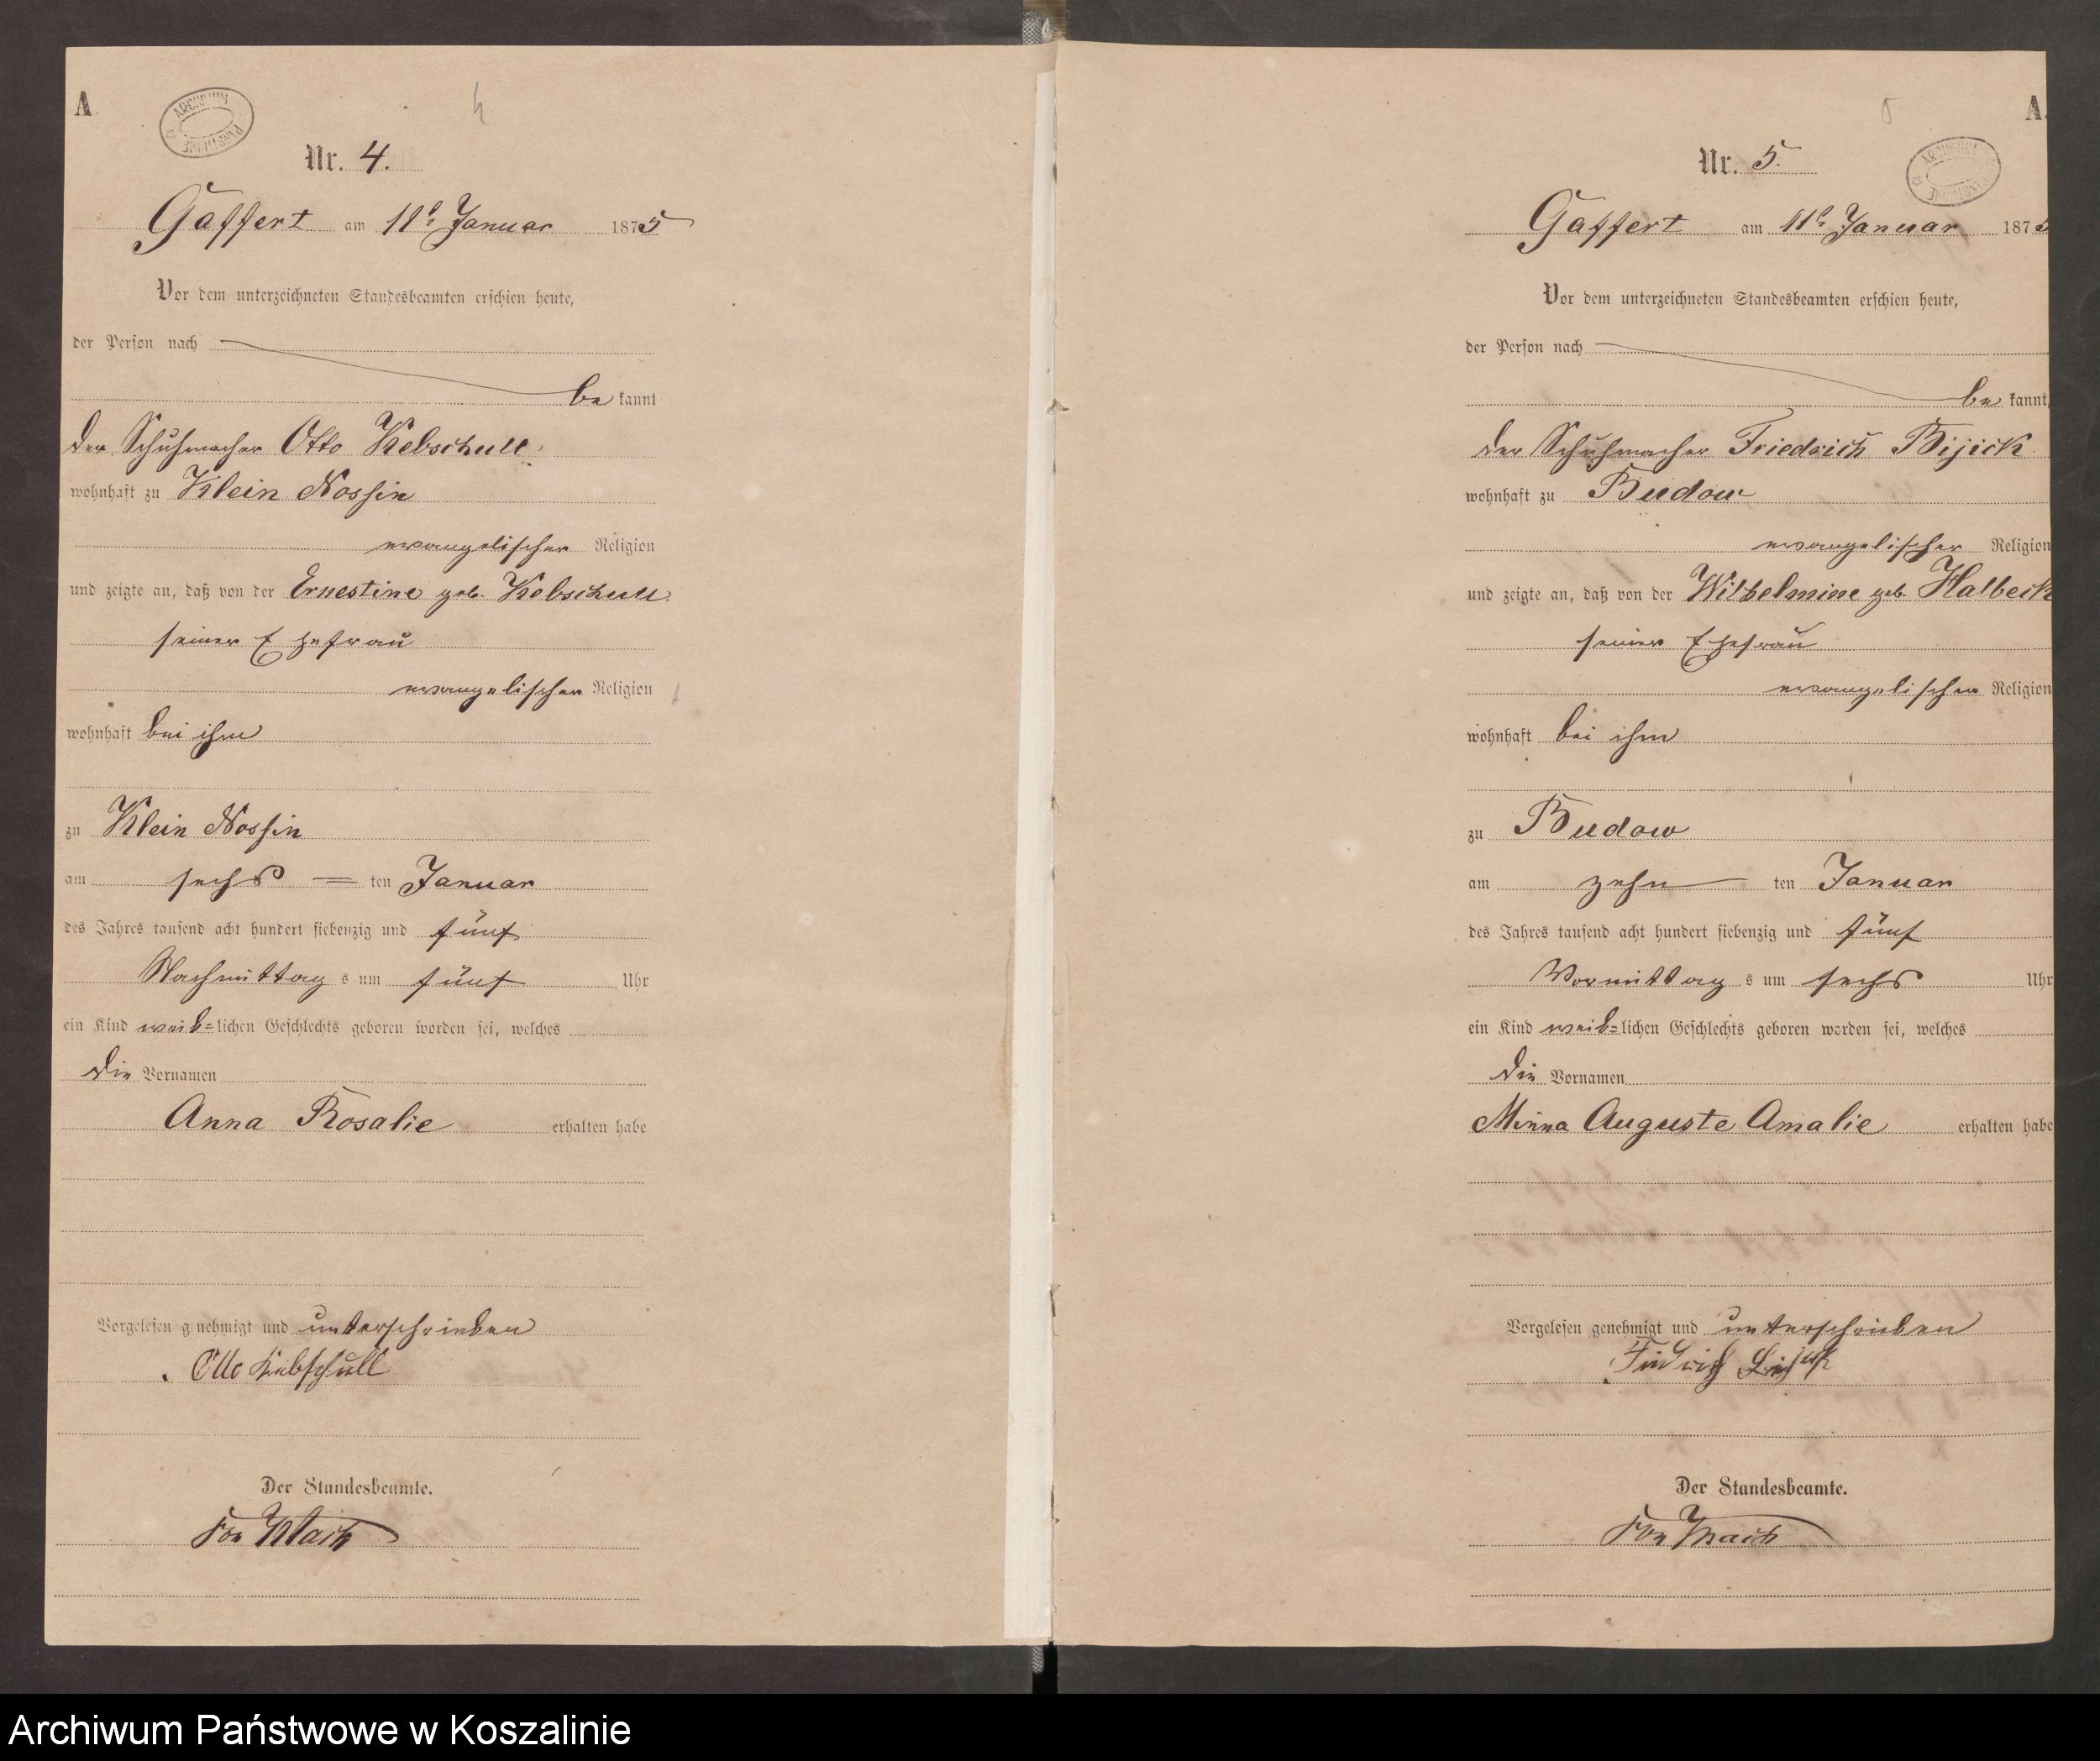 A
ARCHIWUM PAŃSTWOWE
4
Nr. 4.
Gaffert am 11t Januar 1875
Vor dem unterzeichneten Standesbeamten erschien heute,
der Person nach
be kannt
der Schuhmacher Otto Kebschull,
wohnhaft zu Klein Nossin
evangelischer Religion
und zeigte an, daß von der Ernestine geb. Kebschull
seiner Ehefrau
evangelischer Religion
wohnhaft bei ihm
zu Klein Nossin
am sechs = ten Januar
des Jahres tausend acht hundert siebenzig und fünf
Nachmittag s um fünf Uhr
ein Kind weib=lichen Geschlechts geboren worden sei, welches
die Vornamen
Anna Rosalie erhalten habe
Vorgelesen g nehmigt und unterschrieben
Otto Kebschull
Der Standesbeamte.
von Mach
5
A.
ARCHIWUM PAŃSTWOWE
Nr. 5.
Gaffert am 11t Januar 1875
Vor dem unterzeichneten Standesbeamten erschien heute,
der Person nach
be kannt,
der Schuhmacher Friedrich Bijick
wohnhaft zu Budow
evangelischer Religion
und zeigte an, daß von der Wilhelmine geb. Halbeck
seiner Ehefrau
evangelischer Religion
wohnhaft bei ihm
zu Budow
am zehn ten Januar
des Jahres tausend acht hundert siebenzig und fünf
Vormittag s um sechs Uhr
ein Kind weib=lichen Geschlechts geboren worden sei, welches
die Vornamen
Minna Auguste Amalie erhalten habe
Vorgelesen genehmigt und unterschrieben
Friedrich
Der Standesbeamte.
von Mach
Archiwum Państwowe w Koszalinie